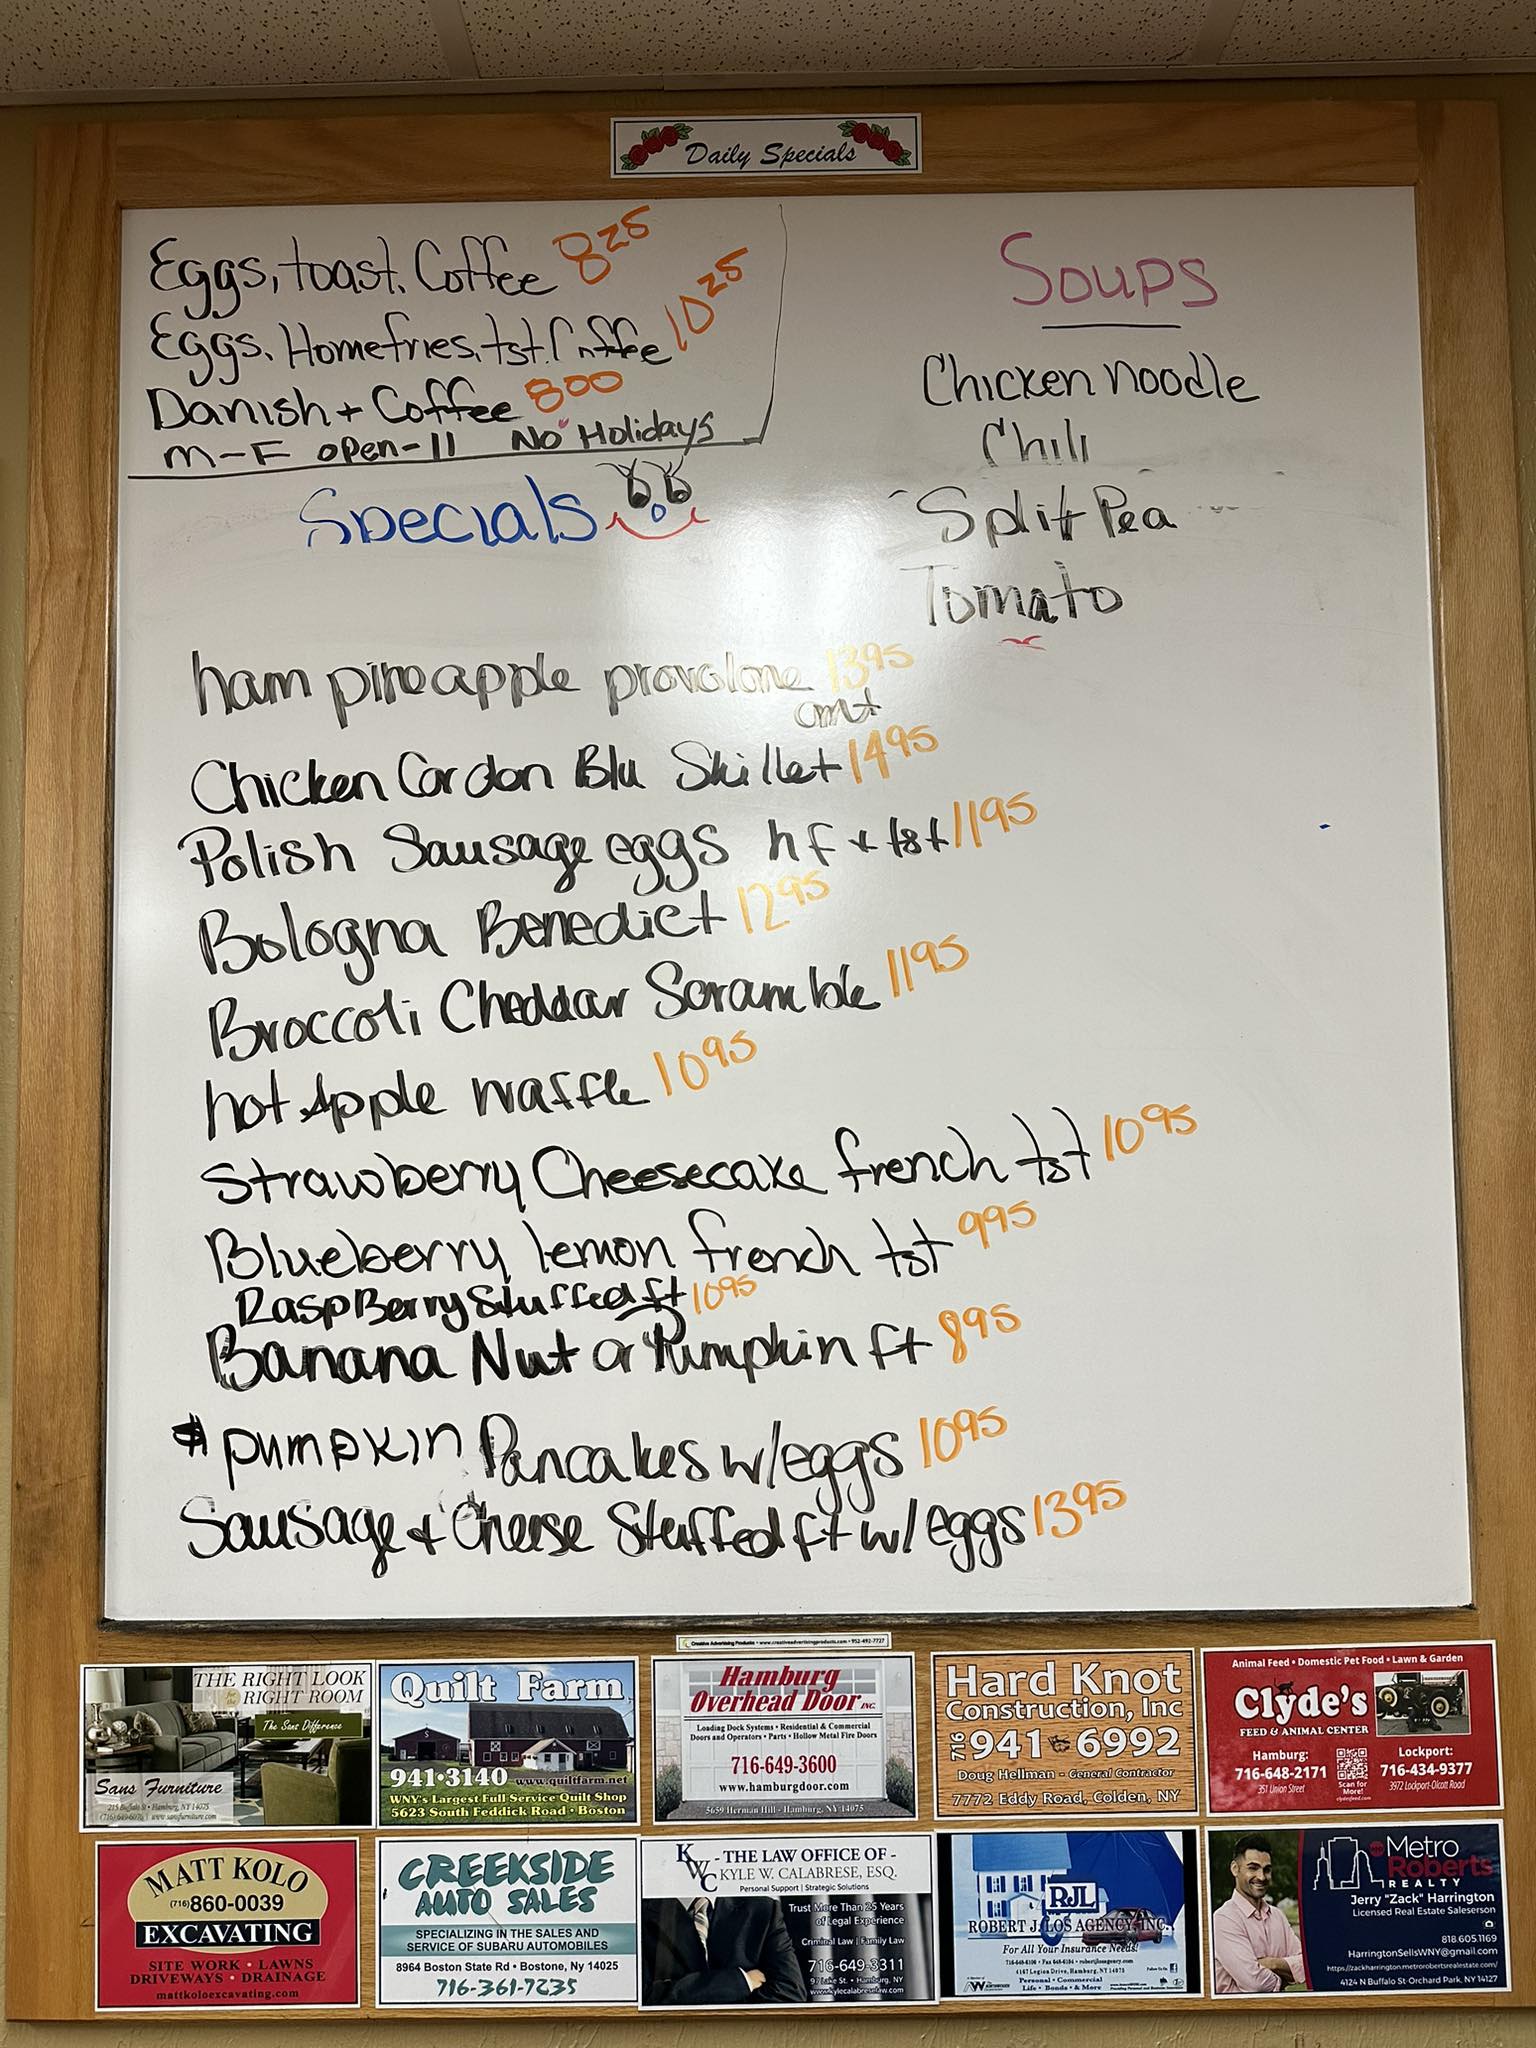 Daily Specials
Eggs, toast, Coffee 8 25
Eggs, Homefries, tst. Coffee 10 25
Danish + Coffee 8 00
M-F open-11 No Holidays
Soups
Chicken noodle
Chili
Split Pea
Tomato
Specials
ham pineapple provolone omt 13 95
Chicken Cordon Blu Skillet 14 95
Polish Sausage eggs hf + tst 11 95
Bologna Benedict 12 95
Broccoli Cheddar Scramble 11 95
hot Apple waffle 10 95
Strawberry Cheesecake french tst 10 95
Blueberry lemon french tst 9 95
RaspBerry Stuffed ft 10 95
Banana Nut or Pumpkin ft 8 95
pumpkin Pancakes w/eggs 10 95
Sausage + Cheese Stuffed ft w/ eggs 13 95
Creative Advertising Products • www.creativeadvertisingproducts.com • 952-492-7727
THE RIGHT LOOK
for the
RIGHT ROOM
The Sans Difference
Sans Furniture
215 Buffalo St • Hamburg, NY 14075
www.sansfurniture.com
Quilt Farm
941•3140 www.quiltfarm.net
WNY's Largest Full Service Quilt Shop
5623 South Feddick Road • Boston
Hamburg
Overhead Door INC.
Loading Dock Systems • Residential & Commercial
Doors and Operators • Parts • Hollow Metal Fire Doors
716-649-3600
www.hamburgdoor.com
5659 Herman Hill - Hamburg, NY 14075
Hard Knot
Construction, Inc
716 941 6992
Doug Hellman - General Contractor
7772 Eddy Road, Colden, NY
Animal Feed • Domestic Pet Food • Lawn & Garden
Clyde's
FEED & ANIMAL CENTER
Hamburg:
716-648-2171
351 Union Street
Scan for
More!
clydesfeed.com
Lockport:
716-434-9377
3972 Lockport-Olcott Road
MATT KOLO
(716) 860-0039
EXCAVATING
SITE WORK • LAWNS
DRIVEWAYS • DRAINAGE
mattkoloexcavating.com
CREEKSIDE
AUTO SALES
SPECIALIZING IN THE SALES AND
SERVICE OF SUBARU AUTOMOBILES
8964 Boston State Rd • Bostone, Ny 14025
716-361-7235
KWC
- THE LAW OFFICE OF -
KYLE W. CALABRESE, ESQ.
Personal Support | Strategic Solutions
Trust More Than 25 Years
of Legal Experience
Criminal Law | Family Law
716-649-3311
97 Lake St. • Hamburg, NY
www.kylecalabreselaw.com
RJL
ROBERT J. LOS AGENCY, INC.
For All Your Insurance Needs!
4167 Legion Drive, Hamburg, NY 14075
Personal • Commercial
Life • Bonds • & More
Metro
Roberts
REALTY
Jerry "Zack" Harrington
Licensed Real Estate Saleserson
818.605.1169
HarringtonSellsWNY@gmail.com
https://zackharrington.metrorobertsrealestate.com/
4124 N Buffalo St•Orchard Park, NY 14127